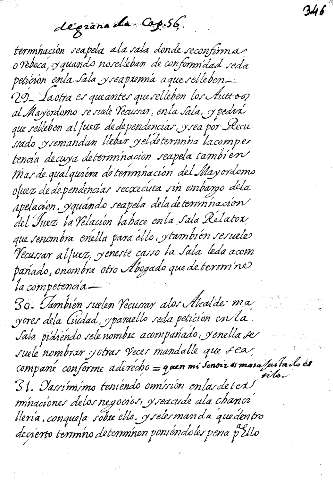 de granada. Cap. 56. 346
terminacion se apela a la sala donde se confirma
o reboca, y quando no se lleben de conformidad se da
peticion en la Sala y se apremia a que se lleben
29. La otra es que antes que se lleben los Autos
al Mayordomo se suele Recusar, en la Sala, y pedir
que se lleben al Juez de dependencias, y sea por Recu
sado, y se mandan llebar y el determina la compe
tencia de cuya determinacion se apela tambien
mas de qualquiera determinacion del Mayordomo
o Juez de dependencias se execuita sin embargo de la
apelacion, y quando se apela de la determinacion
del Juez la Relacion la hace en la Sala Relator
que se nombra en ella para ello, y tambien se suele
Recussar al Juez, y en este casso la Sala le da acom
pañado, o nombra otro Abogado que determine
la competencia
30. Tambien suelen Recussar a los Alcaldes ma
yores de la Ciudad, y para ello se da peticion en la
Sala pidiendo se le nombre acompañado, y en ella se
suele nombrar, y otras veces mandalle que se a
compañe conforme a derecho =
31. Y assi mismo teniendo omission en las deter
minaciones de los negocios, y se acude a la chanci
lleria, con quexa sobre ello, y se les manda que dentro
de cierto termino determinen poniendoles pena p.ª ello